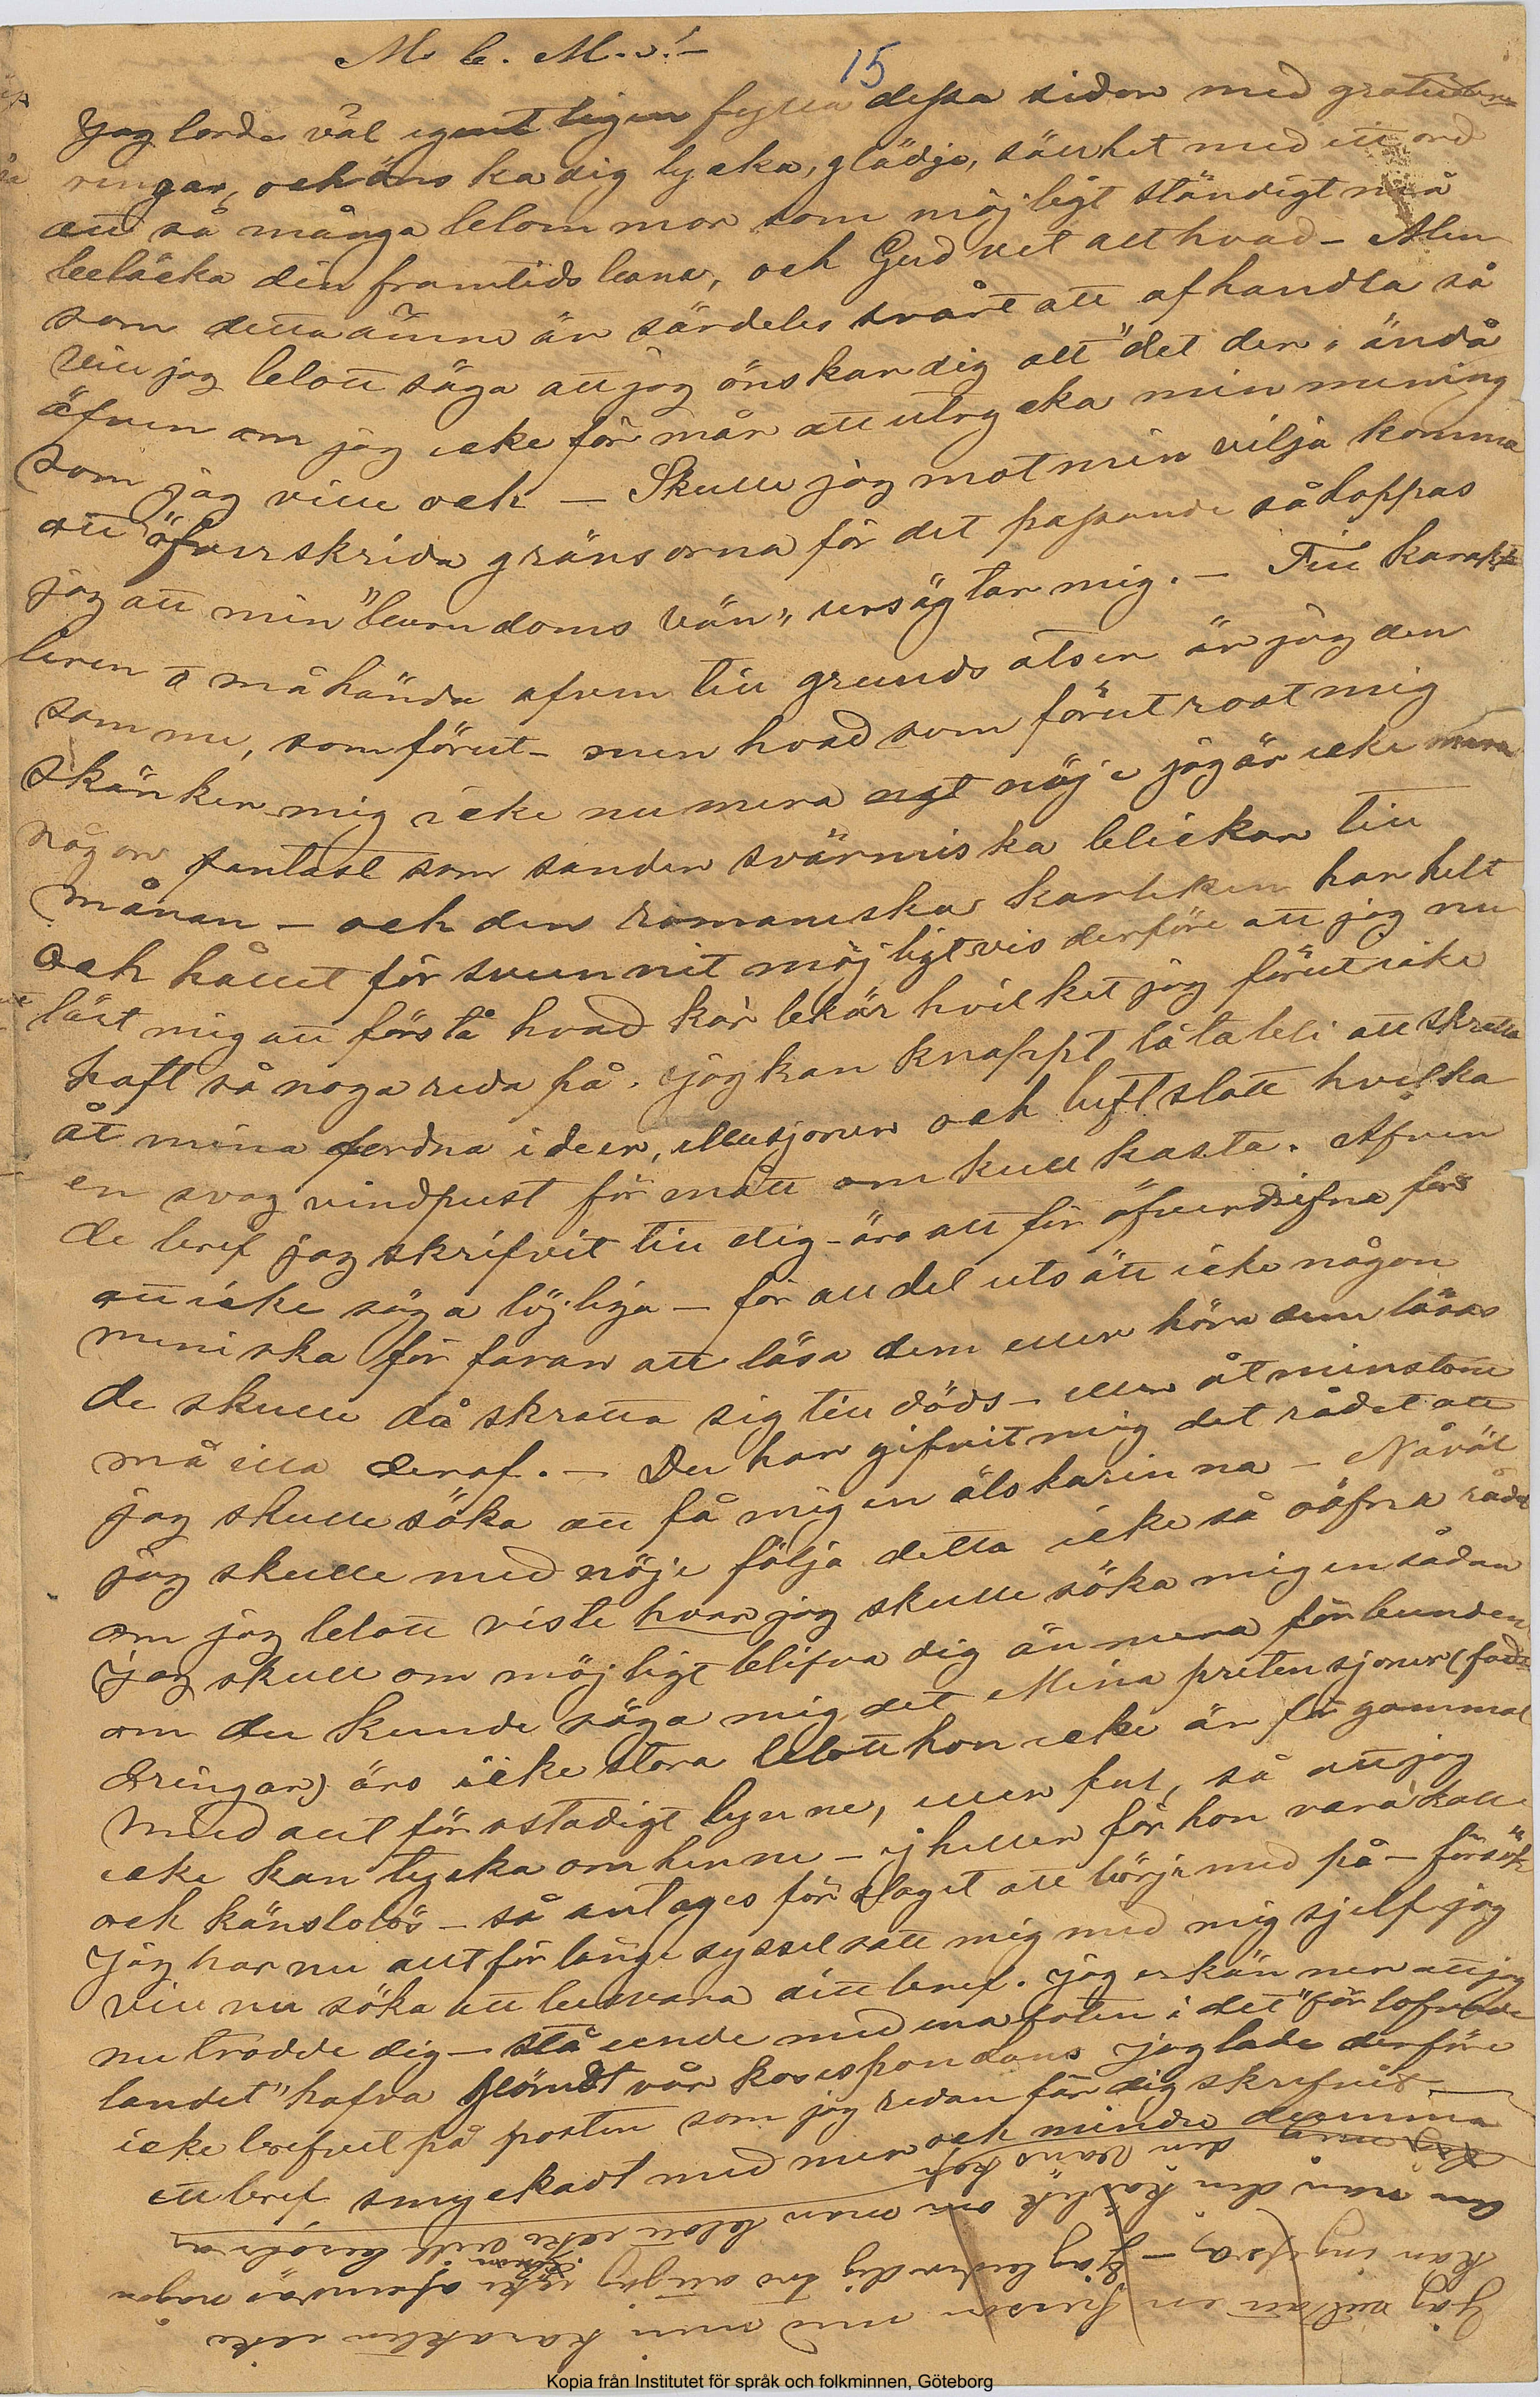 M. C. M. v!–
15
Jag borde väl egentligen fylla dessa sidor med gratule
ringar, och önska dig lycka, glädje, sällhet med ett ord
att så många blommor som möjligt ständigt må
betäcka din framtids bana, och Gud vet allt hvad – Men
som detta ämne är särdeles svårt att afhandla så
vill jag blott säga att jag önskar dig allt "det der" ändå
äfven om jag icke förmår att utrycka min mening
som jag ville och – Skulle jag mot min vilja komma
att öfverskrida gränsorna för det passande så hoppas
jag att min "barndoms vän" ursägtar mig. – Till karak
teren o måhända afven till grundsatser är jag den
samme, som förut – men hvad som förut roat mig
skänker mig icke numera ngt nöje jag är icke mera
någon fantast som sänder svärmiska blickar till
månan – och den romaneska kärleken har helt
och hållet försvunnit möjligtvis derföre att jag nu
lärt mig att förstå hvad kärlek är hvilket jag förut icke
haft så noga reda på. jag kan knappt låta bli att skratta
åt mina fordna ideer, illusjoner och luftslott hvilka
en svag vindpust förmått omkull kasta. Afven
de bref jag skrifvit till dig – äro allt för öfverdrifna för
att icke säga löjliga – för all del utsätt icke någon
meniska för faran att läsa dem eller höra dem läsas
de skulle då skratta sig till döds – eller åtminstone
må illa deraf. – Du har gifvit mig det rådet att
jag skulle söka att få mig en älskarinna – Nåväl
jag skulle med nöje följa detta icke så oäfna råd
om jag blott viste hvar jag skulle söka mig en sådan
Jag skulle om möjligt blifva dig än mera förbunden
om du kunde säga mig det Mina pretensjoner (ford
dringar) äro icke stora blott hon icke är för gammal
med allt för ostadigt lynne, eller ful, så att jag
icke kan tycka om henne – ej heller får hon vara kall
och känslolös – så antages förslaget att börja med på – försök
Jag har nu allt för länge sysselsatt mig med mig sjelf jag
vill nu söka att besvara ditt bref. jag erkänner att jag
nu trodde dig – stående med ena foten i det "förlofvade
landet" hafva glömdt vår korespondans jag lade derföre
icke brefvet på posten som jag redan för dig skrifvit –
ett bref smyckadt med mer och mindre dumma
Jag vet att en person med min karakter icke
kan ingifva – Jag beder dig tro att jag icke afundas någon
än när din kärlek om man blott icke vill beröfva
mig den vänskap
Kopia från Institutet för språk och folkminnen, Göteborg